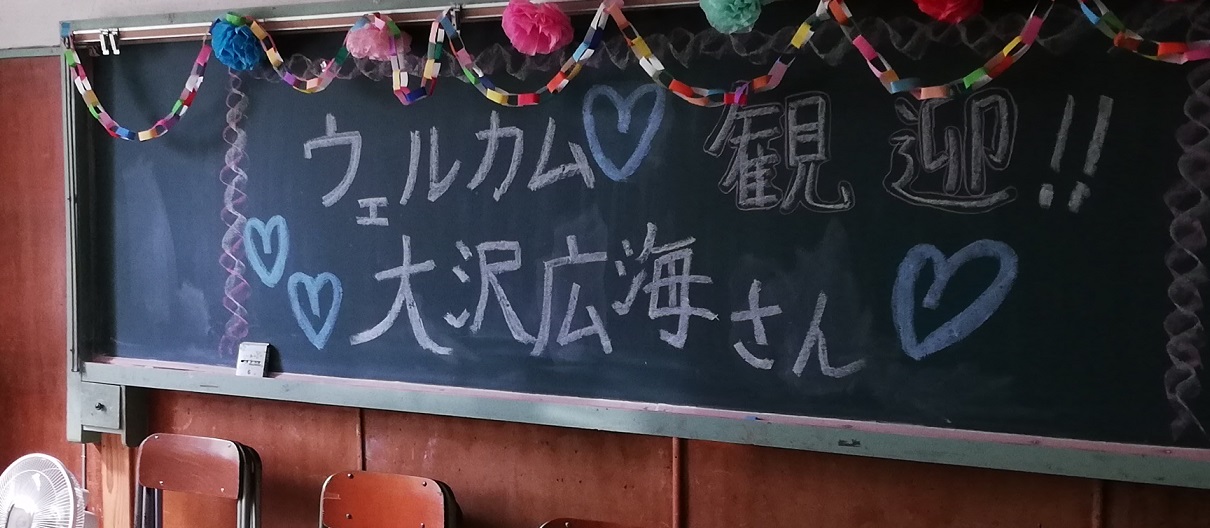 ウェルカム♡ 観迎!!
大沢広海さん